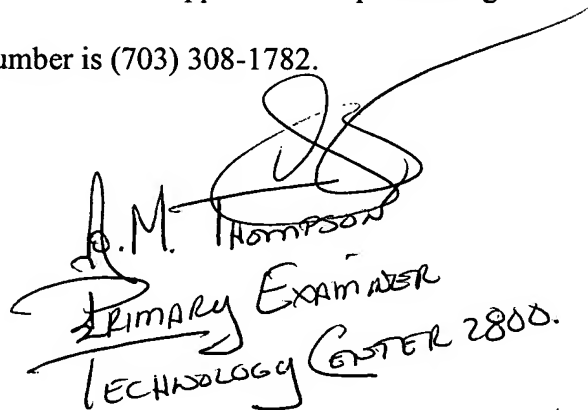 umber is (703) 308-1782.
A.M. THOMPSON
PRIMARY EXAMINER
TECHNOLOGY CENTER 2800.